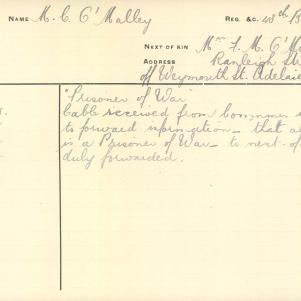 NAME M. C. O'Malley REG. &C. 48th B
NEXT OF KIN Mrs F. M. O'M
ADDRESS Ranleigh Str
off Weymouth St. Adelai
"Prisoner of War"
Cable received from Commun
to forward information - that a
is a Prisoner of War - to next-of
duly forwarded.